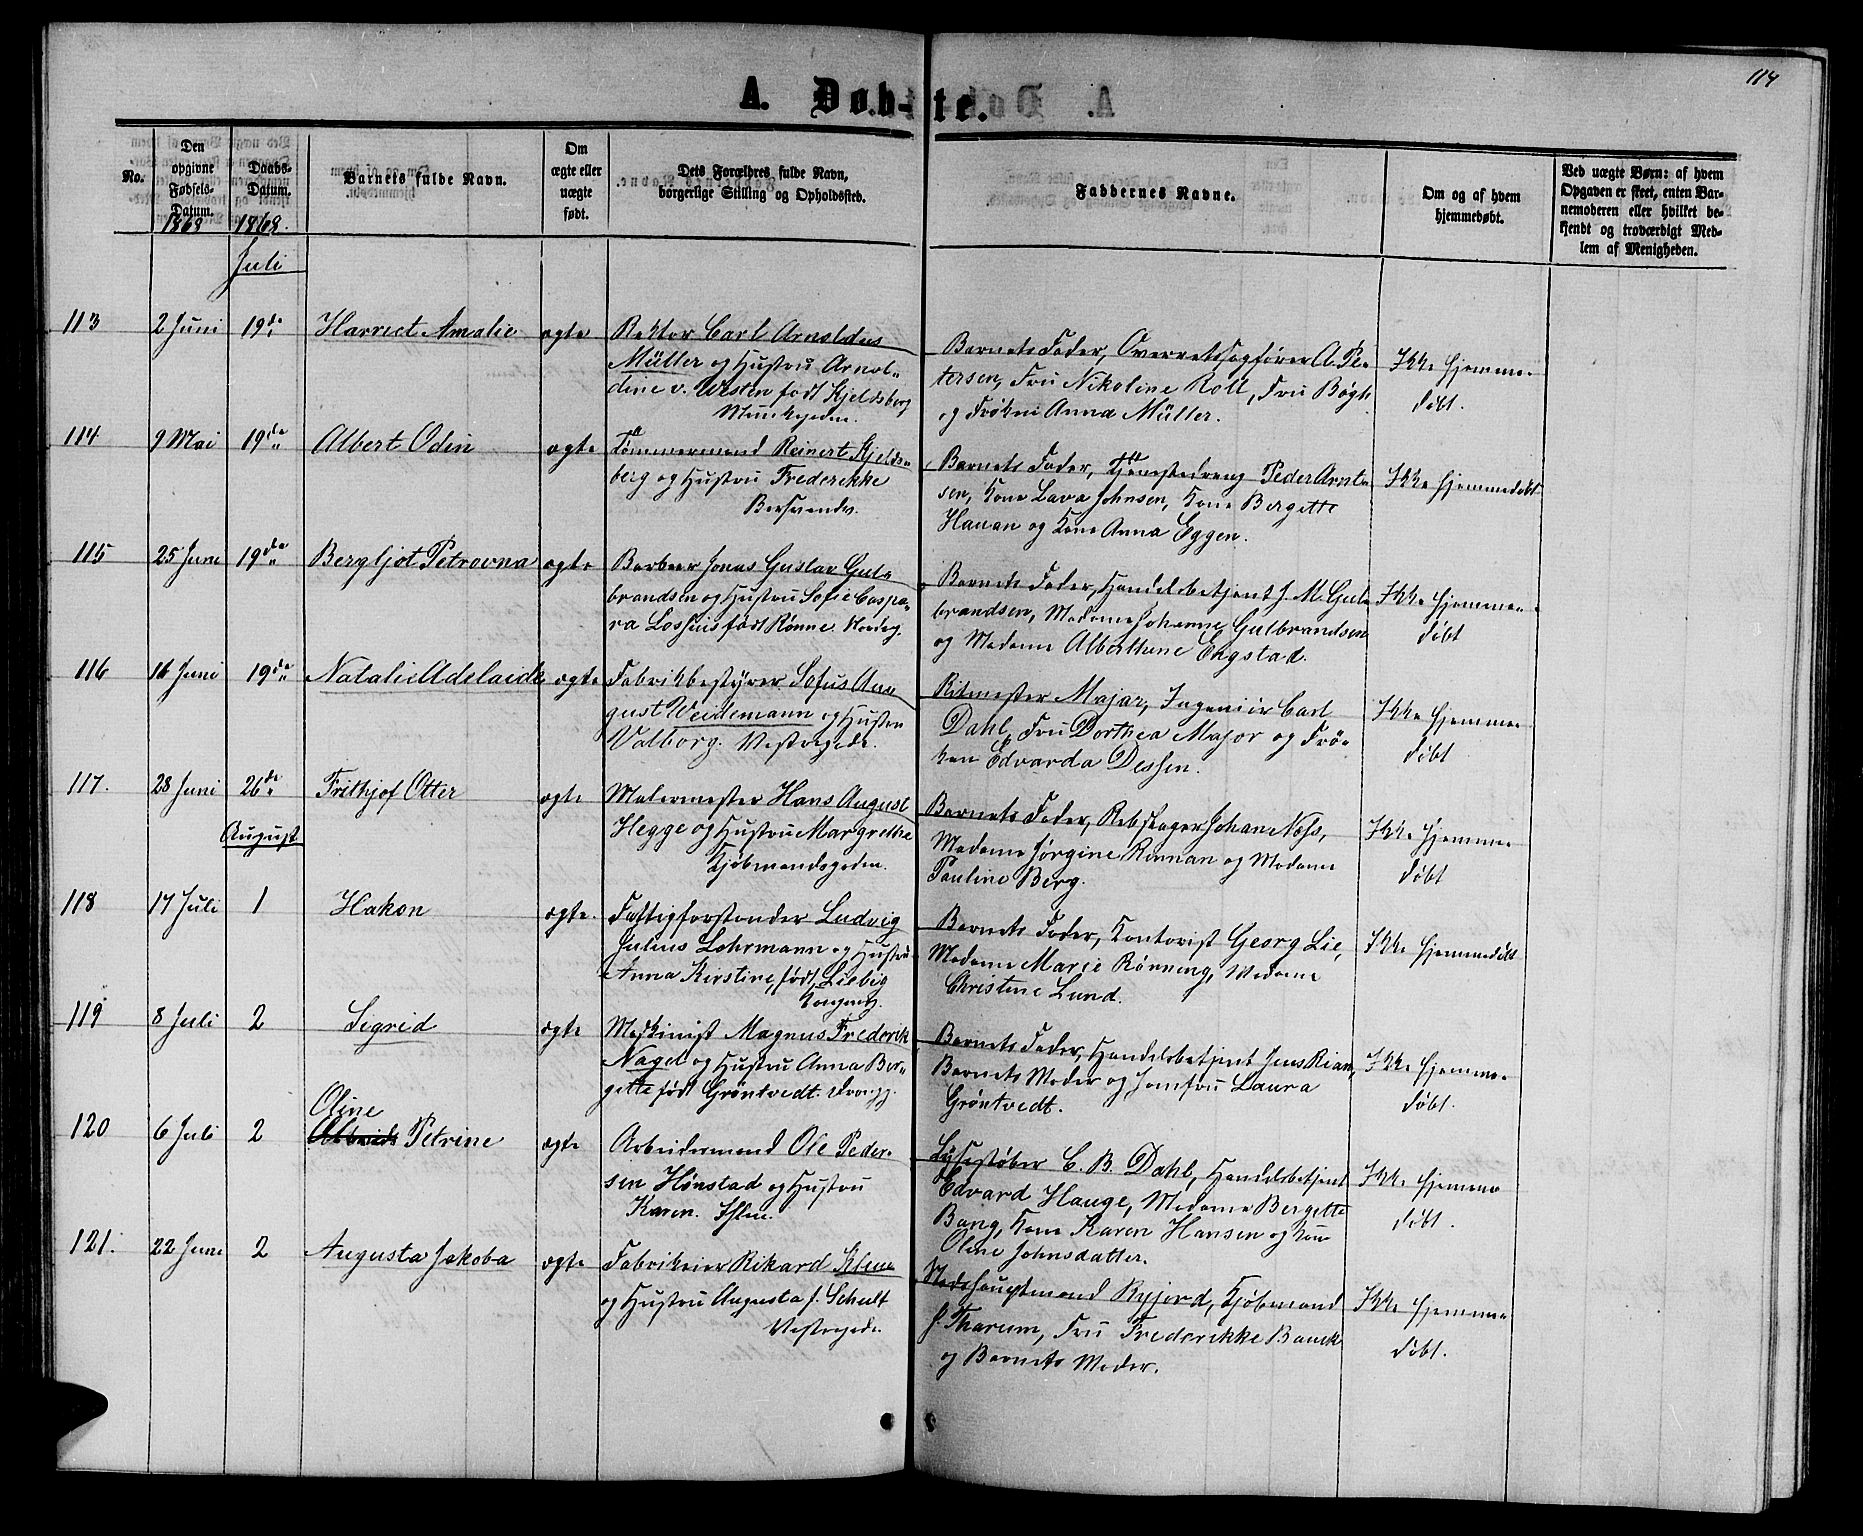 114
A. Døb-te.
No.
Den opgivne Fødsels-Datum.
Daabs-Datum.
Barnets fulde Navn.
Om ægte eller uægte født.
Dets Forældres fulde Navn, borgerlige Stilling og Opholdssted.
Faddernes Navne.
Om og af hvem hjemmedøbt.
Ved uægte Børn: af hvem Opgaven er skeet, enten Barnemoderen eller hvilket bekjendt og troværdigt Medlem af Menigheden.
1868 1868.
Juli
113 2 Juni 19de Harriet Amalie ægte
Rektor Carl Arnoldus
Müller og Hustru Arnol-
dine v. Westen født Kjeldsberg
Munkegaden.
Barnets Fader, Overretssagfører A. Pe-
tersen, Fru Nikoline Roll, Fru Bøgh
og Frøken Anna Müller.
Ikke hjemme-
døbt.
114 9 Mai 19de Albert Odin ægte
Tømmermand Reinert Kjelds-
berg og Hustru Frederikke
Barnets Fader, Tjenestedreng Peder Arnt-
sen, Kone Lava Johnsen, Kone Bergette
Hauan og Kone Anna Eggen.
Ikke hjemmedøbt
115 25 Juni 19de Bergljot Petrovna ægte
Barbeer Jonas Gustav Gul-
brandsen og Hustru Sofie Caspa-
ra Loshius født Rønne. Nordreg.
Barnets Fader, Handelsbetjent J. M. Gul-
brandsen, Madame Johanne Gulbrandsen
og Madame Alberthine Engstad.
Ikke hjemme-
døbt
116 16 Juni 19de Natalie Adelaide ægte
Fabrikbestyrer Sofus Au-
gust Weidemann og Hustru
Valborg. Vestregade.
Ritmester Major, Ingeniør Carl
Dahl, Fru Dorthea Major og Frø-
ken Edvarda Dessen.
Ikke hjemme-
døbt
117. 28 Juni 26de Frithjof Otter ægte
Malermester Hans August
Hegge og Hustru Margrethe
Kjøbmandsgaden.
Barnets Fader, Rebslager Johan Næss,
Madame Jørgine Rannan og Madame
Pauline Berg.
Ikke hjemme-
døbt
August
118 17 Juli 1 Hakon ægte.
Fattigforstander Ludvig
Julius Lohrmann og Hustru
Anna Kirstine, født Liebig
Kongensg.
Barnets Fader, Kontorist Georg Lie,
Madame Marie Rønning, Madame
Christine Lund.
Ikke hjemmedøbt
119 8 Juli 2 Sigrid ægte
Maskinist Magnus Frederik
Nagel og Hustru Anna Ber-
gette født Grøntvedt.
Barnets Fader, Handelsbetjent Jens Rian,
Barnets Moder og Jomfru Laura
Grøntvedt.
Ikke hjemme-
døbt.
Oline
120 6 Juli 2 Petrine ægte
Arbeidermand Ole Peder-
sen Hønstad og Hustru
Karen. Ihlen.
Lysestøber C. B. Dahl, Handelsbetjent
Edvard Hauge, Madame Bergette
Bang, Kone Karen Hansen og Kone
Oline Johnsdatter.
Ikke hjemme
døbt.
121. 22 Juni 2 Augusta Jakoba ægte
Fabrikeier Rikard Klene
og Hustru Augusta f. Schult
Vestregade.
Stadshauptmand Ryjord, Kjøbmand
J. Tharum, Fru Frederikke Bauck
og Barnets Moder.
Ikke hjemme-
døbt.